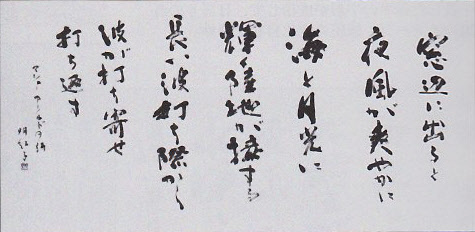 窓辺に出ると
夜風が爽やかに
海と月光に
輝く陸地が接する
長い波打ち際から
波が打ち寄せ
打ち返す
マシュー・アーノルドの詩